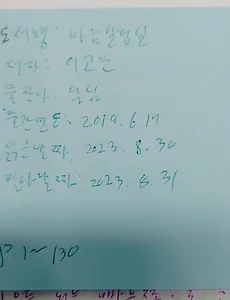 도서명: 마음실험실
저자: 이고은
출판사: 심심
출간연도: 2019. 6. 17
읽은날짜: 2023. 8. 30
필사날짜: 2023. 8. 31
p. 1~130